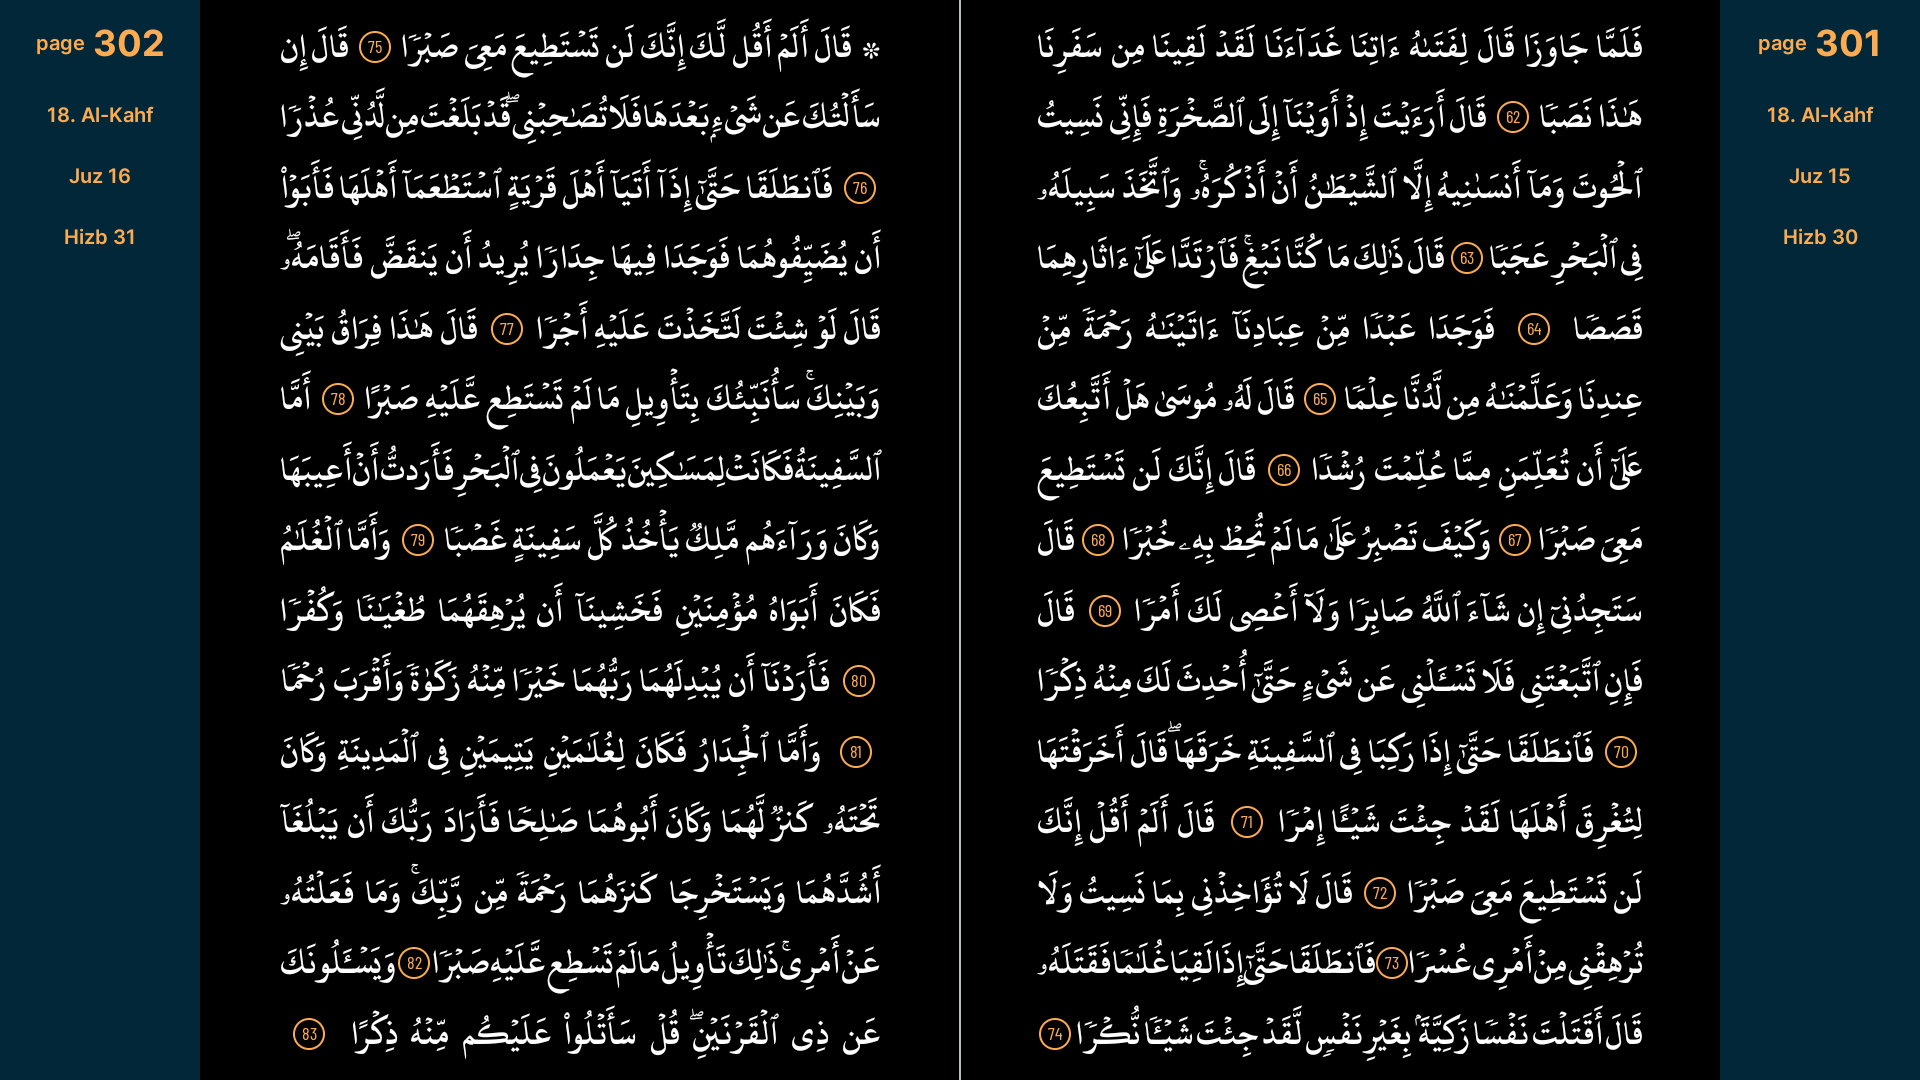 page 301
18. Al-Kahf
Juz 15
Hizb 30
فَلَمَّا جَاوَزَا قَالَ لِفَتَىٰهُ ءَاتِنَا غَدَآءَنَا لَقَدۡ لَقِينَا مِن سَفَرِنَا
هَٰذَا نَصَبٗا 62 قَالَ أَرَءَيۡتَ إِذۡ أَوَيۡنَآ إِلَى ٱلصَّخۡرَةِ فَإِنِّي نَسِيتُ
ٱلۡحُوتَ وَمَآ أَنسَىٰنِيهُ إِلَّا ٱلشَّيۡطَٰنُ أَنۡ أَذۡكُرَهُۥۚ وَٱتَّخَذَ سَبِيلَهُۥ
فِي ٱلۡبَحۡرِ عَجَبٗا 63 قَالَ ذَٰلِكَ مَا كُنَّا نَبۡغِۚ فَٱرۡتَدَّا عَلَىٰٓ ءَاثَارِهِمَا
قَصَصٗا 64 فَوَجَدَا عَبۡدٗا مِّنۡ عِبَادِنَآ ءَاتَيۡنَٰهُ رَحۡمَةٗ مِّنۡ
عِندِنَا وَعَلَّمۡنَٰهُ مِن لَّدُنَّا عِلۡمٗا 65 قَالَ لَهُۥ مُوسَىٰ هَلۡ أَتَّبِعُكَ
عَلَىٰٓ أَن تُعَلِّمَنِ مِمَّا عُلِّمۡتَ رُشۡدٗا 66 قَالَ إِنَّكَ لَن تَسۡتَطِيعَ
مَعِيَ صَبۡرٗا 67 وَكَيۡفَ تَصۡبِرُ عَلَىٰ مَا لَمۡ تُحِطۡ بِهِۦ خُبۡرٗا 68 قَالَ
سَتَجِدُنِيٓ إِن شَآءَ ٱللَّهُ صَابِرٗا وَلَآ أَعۡصِي لَكَ أَمۡرٗا 69 قَالَ
فَإِنِ ٱتَّبَعۡتَنِي فَلَا تَسۡـَٔلۡنِي عَن شَيۡءٍ حَتَّىٰٓ أُحۡدِثَ لَكَ مِنۡهُ ذِكۡرٗا
70 فَٱنطَلَقَا حَتَّىٰٓ إِذَا رَكِبَا فِي ٱلسَّفِينَةِ خَرَقَهَاۖ قَالَ أَخَرَقۡتَهَا
لِتُغۡرِقَ أَهۡلَهَا لَقَدۡ جِئۡتَ شَيۡـًٔا إِمۡرٗا 71 قَالَ أَلَمۡ أَقُلۡ إِنَّكَ
لَن تَسۡتَطِيعَ مَعِيَ صَبۡرٗا 72 قَالَ لَا تُؤَاخِذۡنِي بِمَا نَسِيتُ وَلَا
تُرۡهِقۡنِي مِنۡ أَمۡرِي عُسۡرٗا 73 فَٱنطَلَقَا حَتَّىٰٓ إِذَا لَقِيَا غُلَٰمٗا فَقَتَلَهُۥ
قَالَ أَقَتَلۡتَ نَفۡسٗا زَكِيَّةَۢ بِغَيۡرِ نَفۡسٖ لَّقَدۡ جِئۡتَ شَيۡـٔٗا نُّكۡرٗا 74
page 302
18. Al-Kahf
Juz 16
Hizb 31
۞ قَالَ أَلَمۡ أَقُل لَّكَ إِنَّكَ لَن تَسۡتَطِيعَ مَعِيَ صَبۡرٗا 75 قَالَ إِن
سَأَلۡتُكَ عَن شَيۡءِۭ بَعۡدَهَا فَلَا تُصَٰحِبۡنِيۖ قَدۡ بَلَغۡتَ مِن لَّدُنِّي عُذۡرٗا
76 فَٱنطَلَقَا حَتَّىٰٓ إِذَآ أَتَيَآ أَهۡلَ قَرۡيَةٍ ٱسۡتَطۡعَمَآ أَهۡلَهَا فَأَبَوۡاْ
أَن يُضَيِّفُوهُمَا فَوَجَدَا فِيهَا جِدَارٗا يُرِيدُ أَن يَنقَضَّ فَأَقَامَهُۥۖ
قَالَ لَوۡ شِئۡتَ لَتَّخَذۡتَ عَلَيۡهِ أَجۡرٗا 77 قَالَ هَٰذَا فِرَاقُ بَيۡنِي
وَبَيۡنِكَۚ سَأُنَبِّئُكَ بِتَأۡوِيلِ مَا لَمۡ تَسۡتَطِع عَّلَيۡهِ صَبۡرًا 78 أَمَّا
ٱلسَّفِينَةُ فَكَانَتۡ لِمَسَٰكِينَ يَعۡمَلُونَ فِي ٱلۡبَحۡرِ فَأَرَدتُّ أَنۡ أَعِيبَهَا
وَكَانَ وَرَآءَهُم مَّلِكٞ يَأۡخُذُ كُلَّ سَفِينَةٍ غَصۡبٗا 79 وَأَمَّا ٱلۡغُلَٰمُ
فَكَانَ أَبَوَاهُ مُؤۡمِنَيۡنِ فَخَشِينَآ أَن يُرۡهِقَهُمَا طُغۡيَٰنٗا وَكُفۡرٗا
80 فَأَرَدۡنَآ أَن يُبۡدِلَهُمَا رَبُّهُمَا خَيۡرٗا مِّنۡهُ زَكَوٰةٗ وَأَقۡرَبَ رُحۡمٗا
81 وَأَمَّا ٱلۡجِدَارُ فَكَانَ لِغُلَٰمَيۡنِ يَتِيمَيۡنِ فِي ٱلۡمَدِينَةِ وَكَانَ
تَحۡتَهُۥ كَنزٞ لَّهُمَا وَكَانَ أَبُوهُمَا صَٰلِحٗا فَأَرَادَ رَبُّكَ أَن يَبۡلُغَآ
أَشُدَّهُمَا وَيَسۡتَخۡرِجَا كَنزَهُمَا رَحۡمَةٗ مِّن رَّبِّكَۚ وَمَا فَعَلۡتُهُۥ
عَنۡ أَمۡرِيۚ ذَٰلِكَ تَأۡوِيلُ مَا لَمۡ تَسۡطِع عَّلَيۡهِ صَبۡرٗا 82 وَيَسۡـَٔلُونَكَ
عَن ذِي ٱلۡقَرۡنَيۡنِۖ قُلۡ سَأَتۡلُواْ عَلَيۡكُم مِّنۡهُ ذِكۡرًا 83